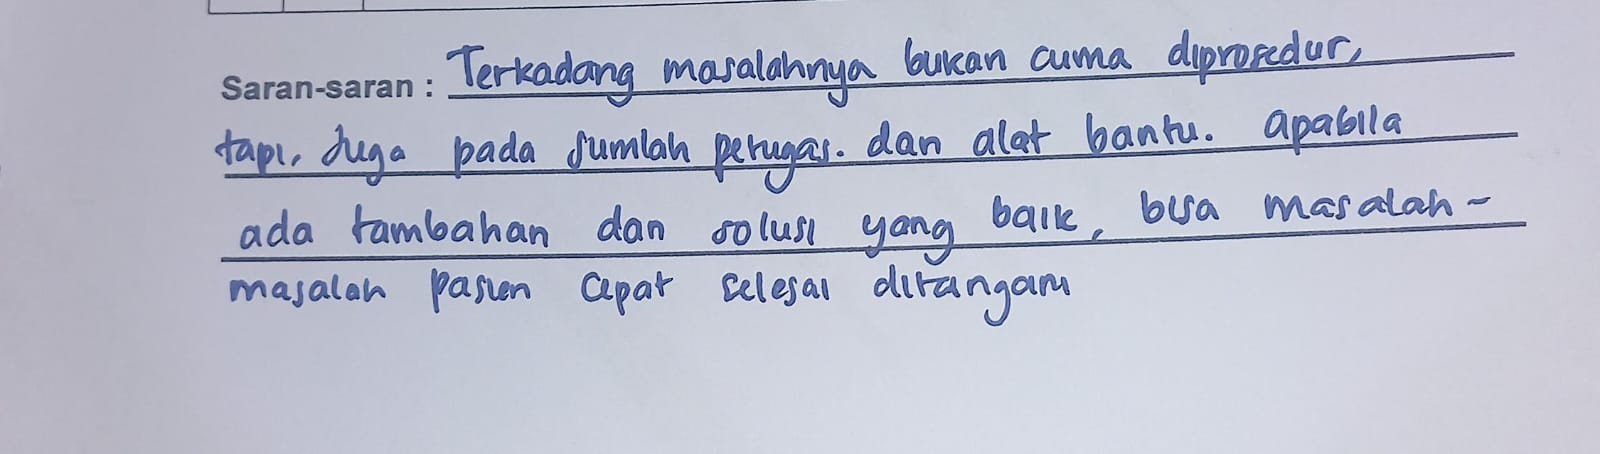 Saran-saran : Terkadang masalahnya bukan cuma diprosedur,
tapi, Juga pada Jumlah petugas. dan alat bantu. apabila
ada tambahan dan solusi yang baik, bisa masalah-
masalah pasien cepat selesai ditangani